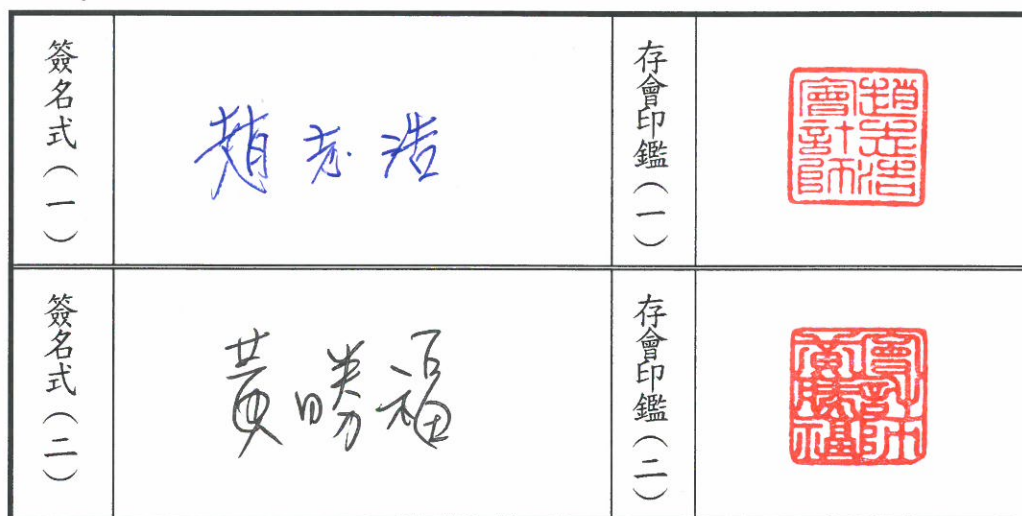 簽名式（一）
趙志浩
存會印鑑（一）
趙志浩會計師
簽名式（二）
黃勝福
存會印鑑（二）
會計師黃勝福